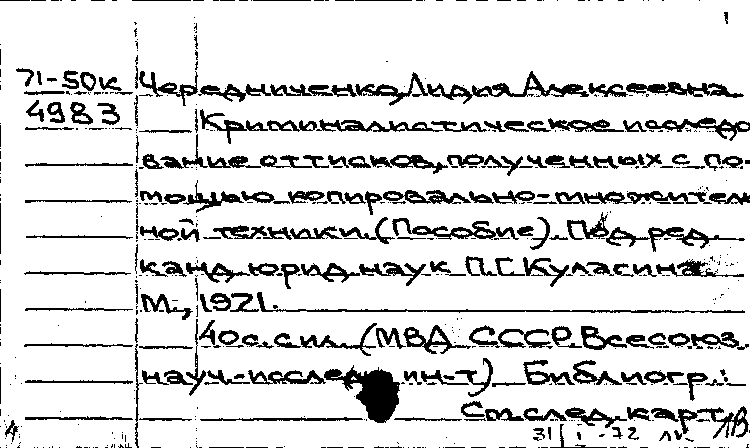 1
71-50к Чередниченко, Лидия Алексеевна.
4983 Криминалистическое исследо
вание оттисков, полученных с по-
мощью копировально-множитель
ной техники. (Пособие). Под ред.
канд. юрид. наук П.Г. Куласина.
М., 1971.
40 с. с ил. (МВД СССР. Всесоюз.
науч.-исслед. ин-т). Библиогр.:
См. след. карт.
31/I-72